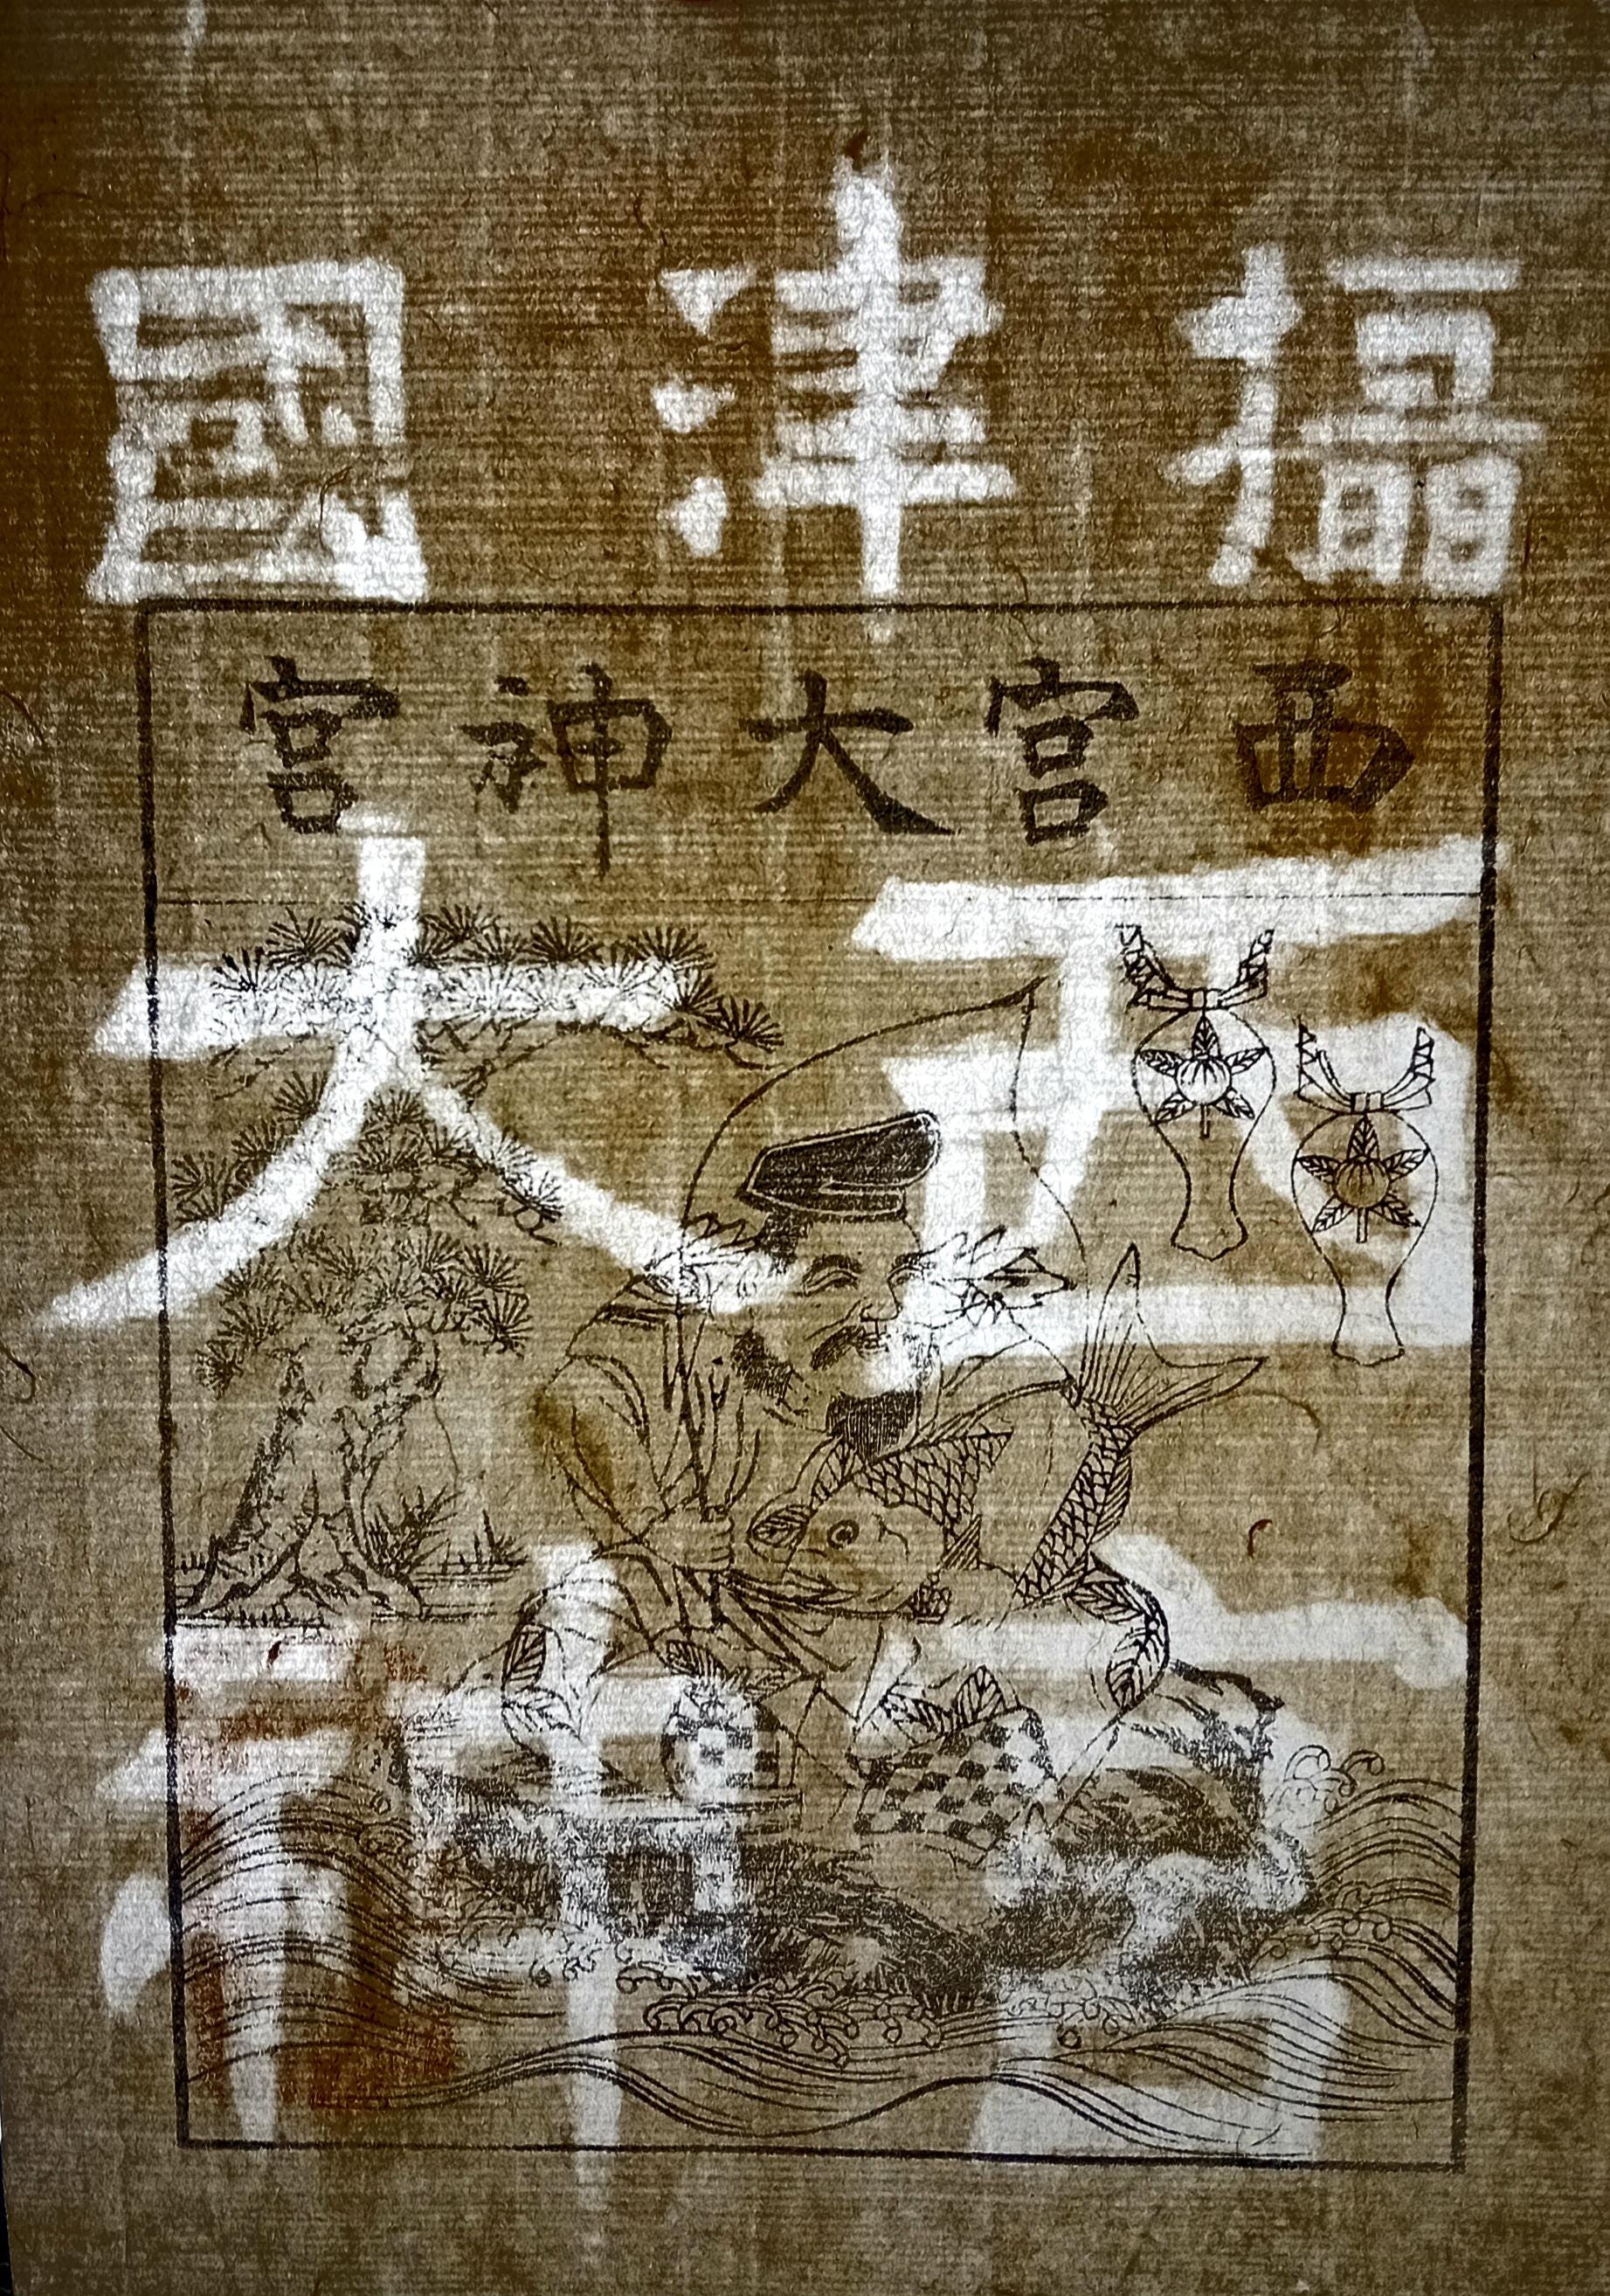 攝津國
西宮大神宮
西宮
大神